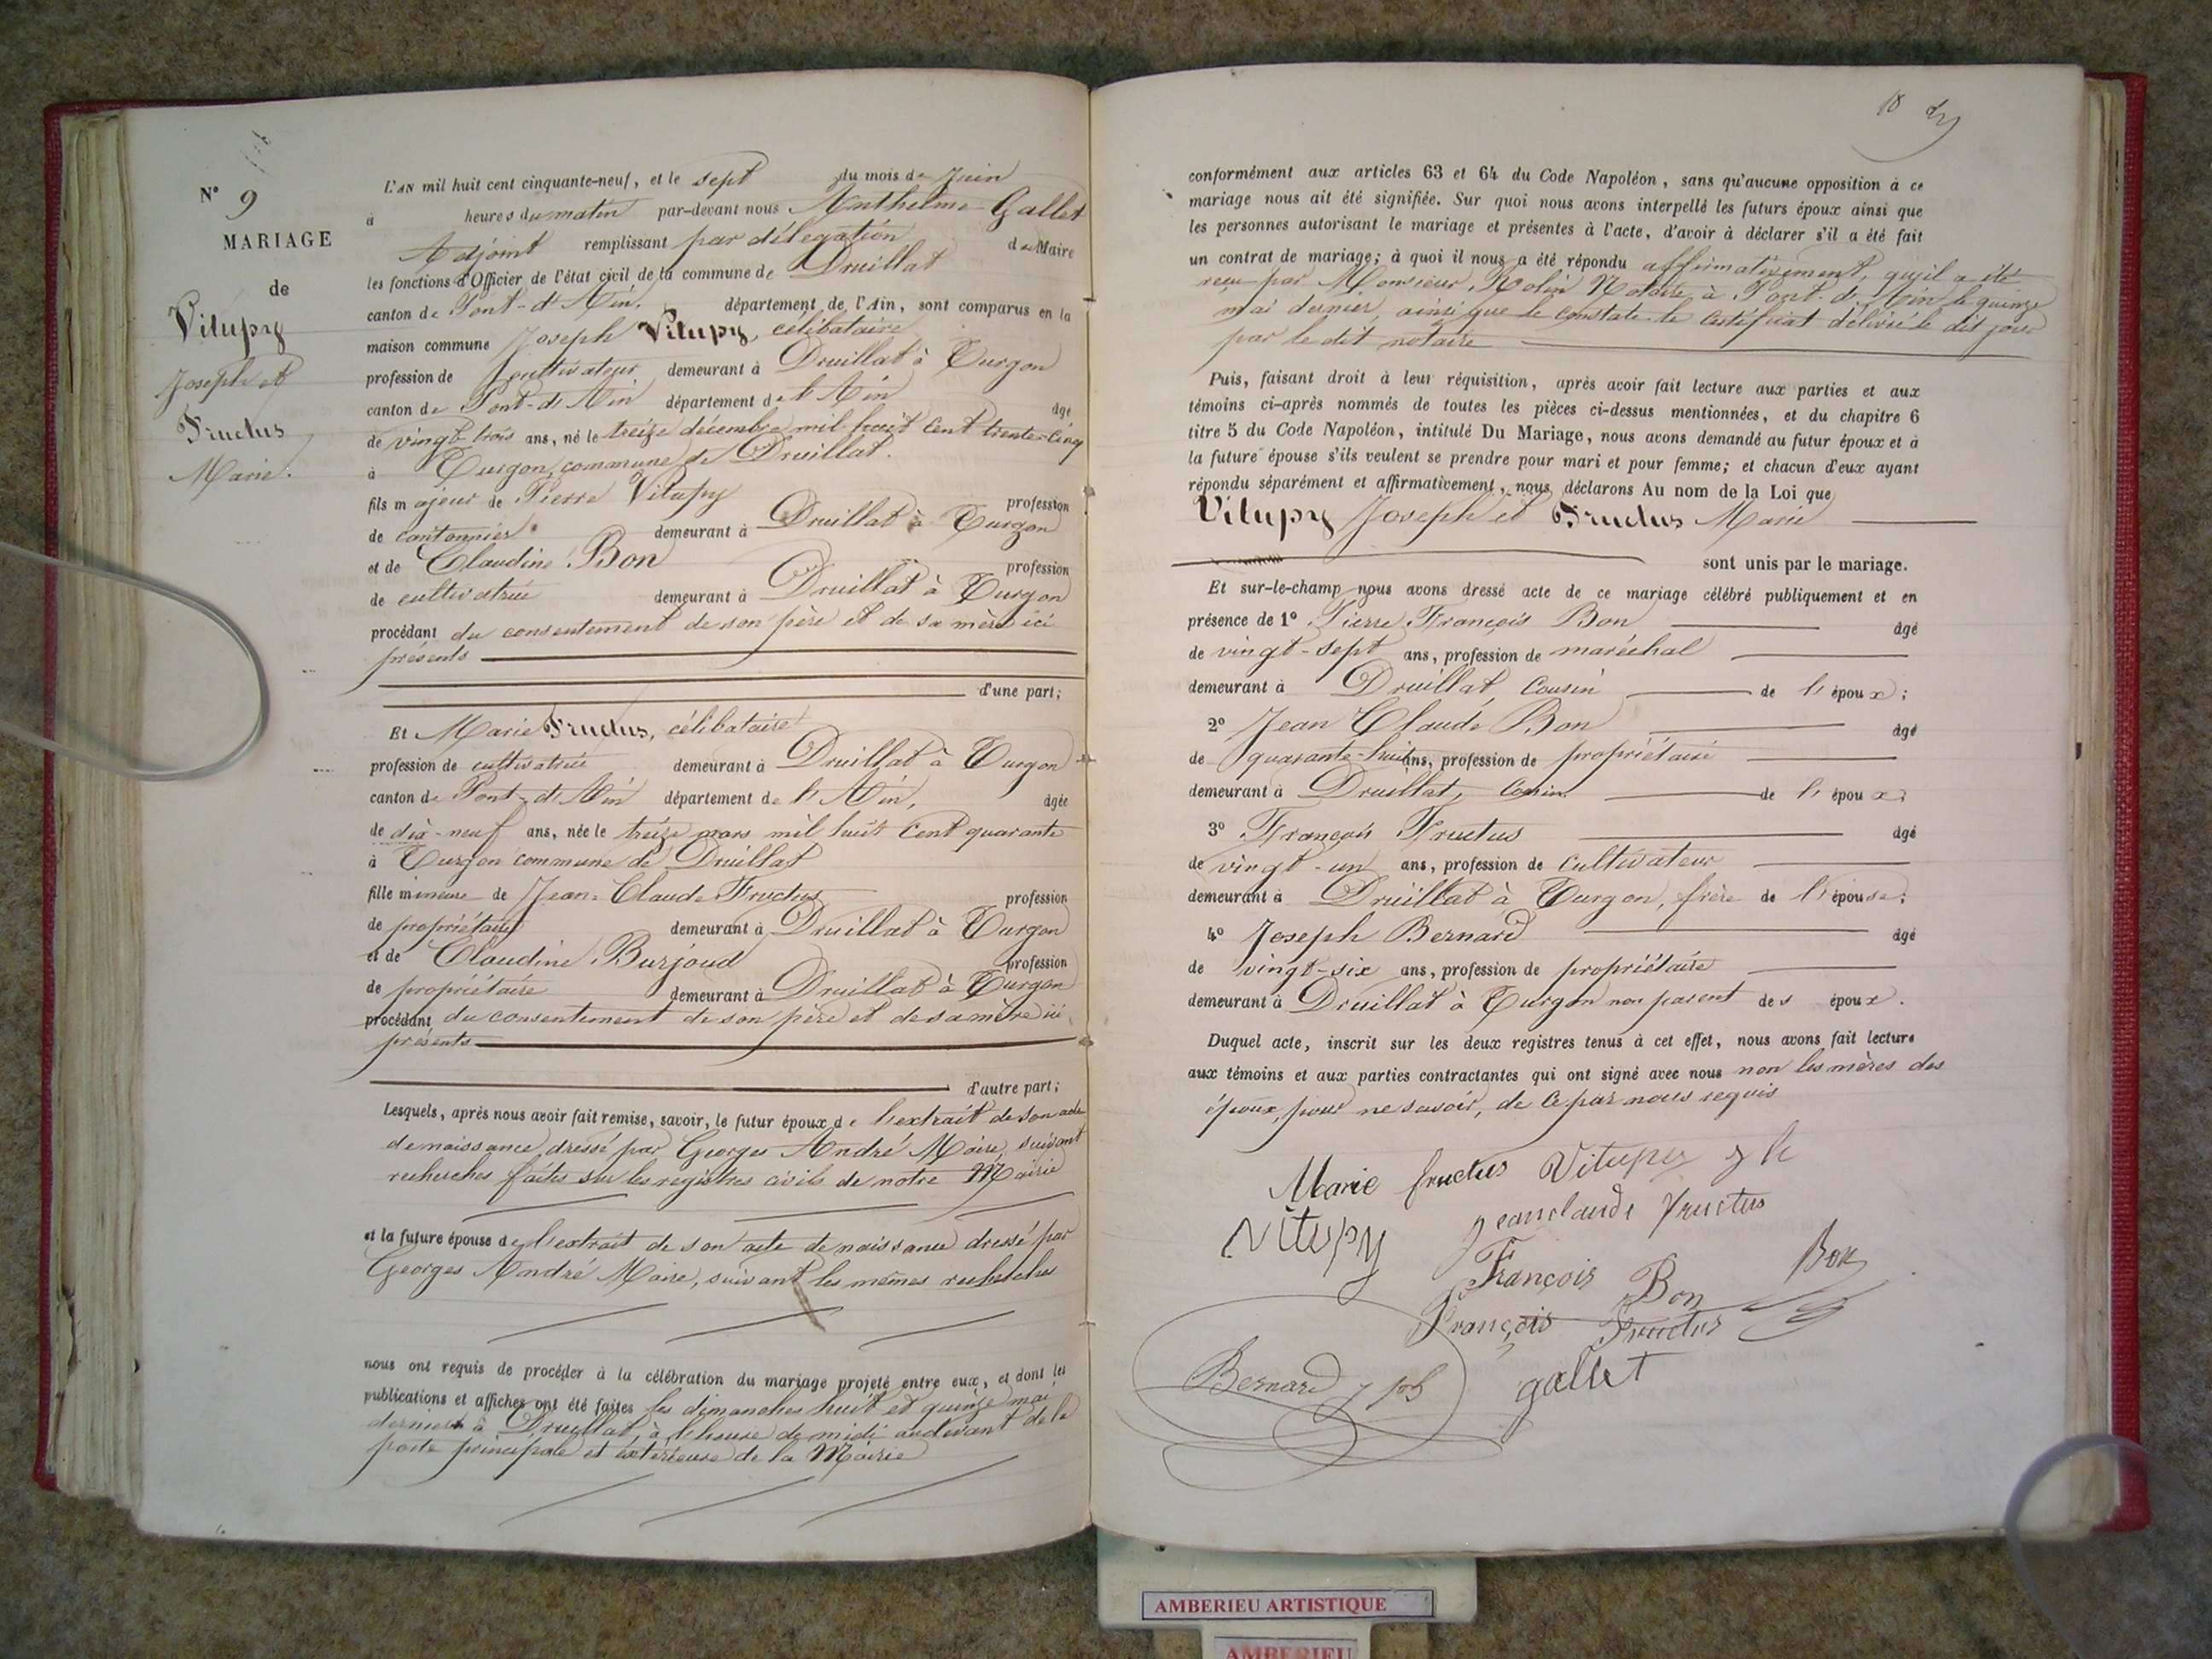 N° 9
MARIAGE
de
Vitupy
Joseph et
Fructus
Marie.
L'AN mil huit cent cinquante-neuf, et le sept du mois de Juin
à heures du matin par-devant nous Anthelme Gallet
Adjoint remplissant par délégation de Maire
les fonctions d'Officier de l'état civil de la commune de Druillat
canton de Pont-d'Ain. département de l'Ain, sont comparus en la
maison commune Joseph Vitupy, célibataire
profession de cultivateur demeurant à Druillat à Turgon
canton de Pont-d'Ain département de l'Ain âgé
de vingt trois ans, né le treize décembre mil huit cent trente-cinq
à Turgon, commune de Druillat.
fils majeur de Pierre Vitupy profession
de cantonnier demeurant à Druillat à Turgon
et de Claudine Bon profession
de cultivatrice demeurant à Druillat à Turgon
procédant du consentement de son père et de sa mère ici
présents
d'une part;
Et Marie Fructus, célibataire
profession de cultivatrice demeurant à Druillat à Turgon
canton de Pont-d'Ain département de l'Ain, âgée
de dix-neuf ans, née le treize mars mil huit cent quarante
à Turgon commune de Druillat
fille mineure de Jean-Claude Fructus profession
de propriétaire demeurant à Druillat à Turgon
et de Claudine Burjoud profession
de propriétaire demeurant à Druillat à Turgon
procédant du consentement de son père et de sa mère ici
présents
d'autre part;
Lesquels, après nous avoir fait remise, savoir, le futur époux de l'extrait de son acte
de naissance dressé par Georges André Maire, suivant
recherches faites sur les registres civils de notre Mairie
et la future épouse de l'extrait de son acte de naissance dressé par
Georges André Maire, suivant les mêmes recherches
nous ont requis de procéder à la célébration du mariage projeté entre eux, et dont les
publications et affiches ont été faites les dimanches huit et quinze mai
derniers à Druillat, à l'heure de midi audevant de la
porte principale et extérieure de la Mairie
18
conformément aux articles 63 et 64 du Code Napoléon, sans qu'aucune opposition à ce
mariage nous ait été signifiée. Sur quoi nous avons interpellé les futurs époux ainsi que
les personnes autorisant le mariage et présentes à l'acte, d'avoir à déclarer s'il a été fait
un contrat de mariage; à quoi il nous a été répondu affirmativement, qu'il a été
reçu par Monsieur Rolin Notaire à Pont-d'Ain le quinze
mai dernier, ainsi que le constate le certificat délivré le dit jour
par le dit notaire
Puis, faisant droit à leur réquisition, après avoir fait lecture aux parties et aux
témoins ci-après nommés de toutes les pièces ci-dessus mentionnées, et du chapitre 6
titre 5 du Code Napoléon, intitulé Du Mariage, nous avons demandé au futur époux et à
la future épouse s'ils veulent se prendre pour mari et pour femme; et chacun d'eux ayant
répondu séparément et affirmativement, nous déclarons Au nom de la Loi que
Vitupy Joseph et Fructus Marie
sont unis par le mariage.
Et sur-le-champ nous avons dressé acte de ce mariage célébré publiquement et en
présence de 1° Pierre François Bon âgé
de vingt-sept ans, profession de maréchal
demeurant à Druillat, cousin de l'époux;
2° Jean Claude Bon âgé
de quarante-huit ans, profession de propriétaire
demeurant à Druillat, Cousin de l'époux;
3° François Fructus âgé
de vingt-un ans, profession de cultivateur
demeurant à Druillat à Turgon, frère de l'épouse;
4° Joseph Bernard âgé
de vingt-six ans, profession de propriétaire
demeurant à Druillat à Turgon non parent des époux.
Duquel acte, inscrit sur les deux registres tenus à cet effet, nous avons fait lecture
aux témoins et aux parties contractantes qui ont signé avec nous non les mères des
époux, pour ne savoir, de ce par nous requis
Marie fructus Vitupy
Vitupy jeanclaude fructus
François Bon Bon
François Fructus
Bernard jph gallet
AMBERIEU ARTISTIQUE
AMBERIEU